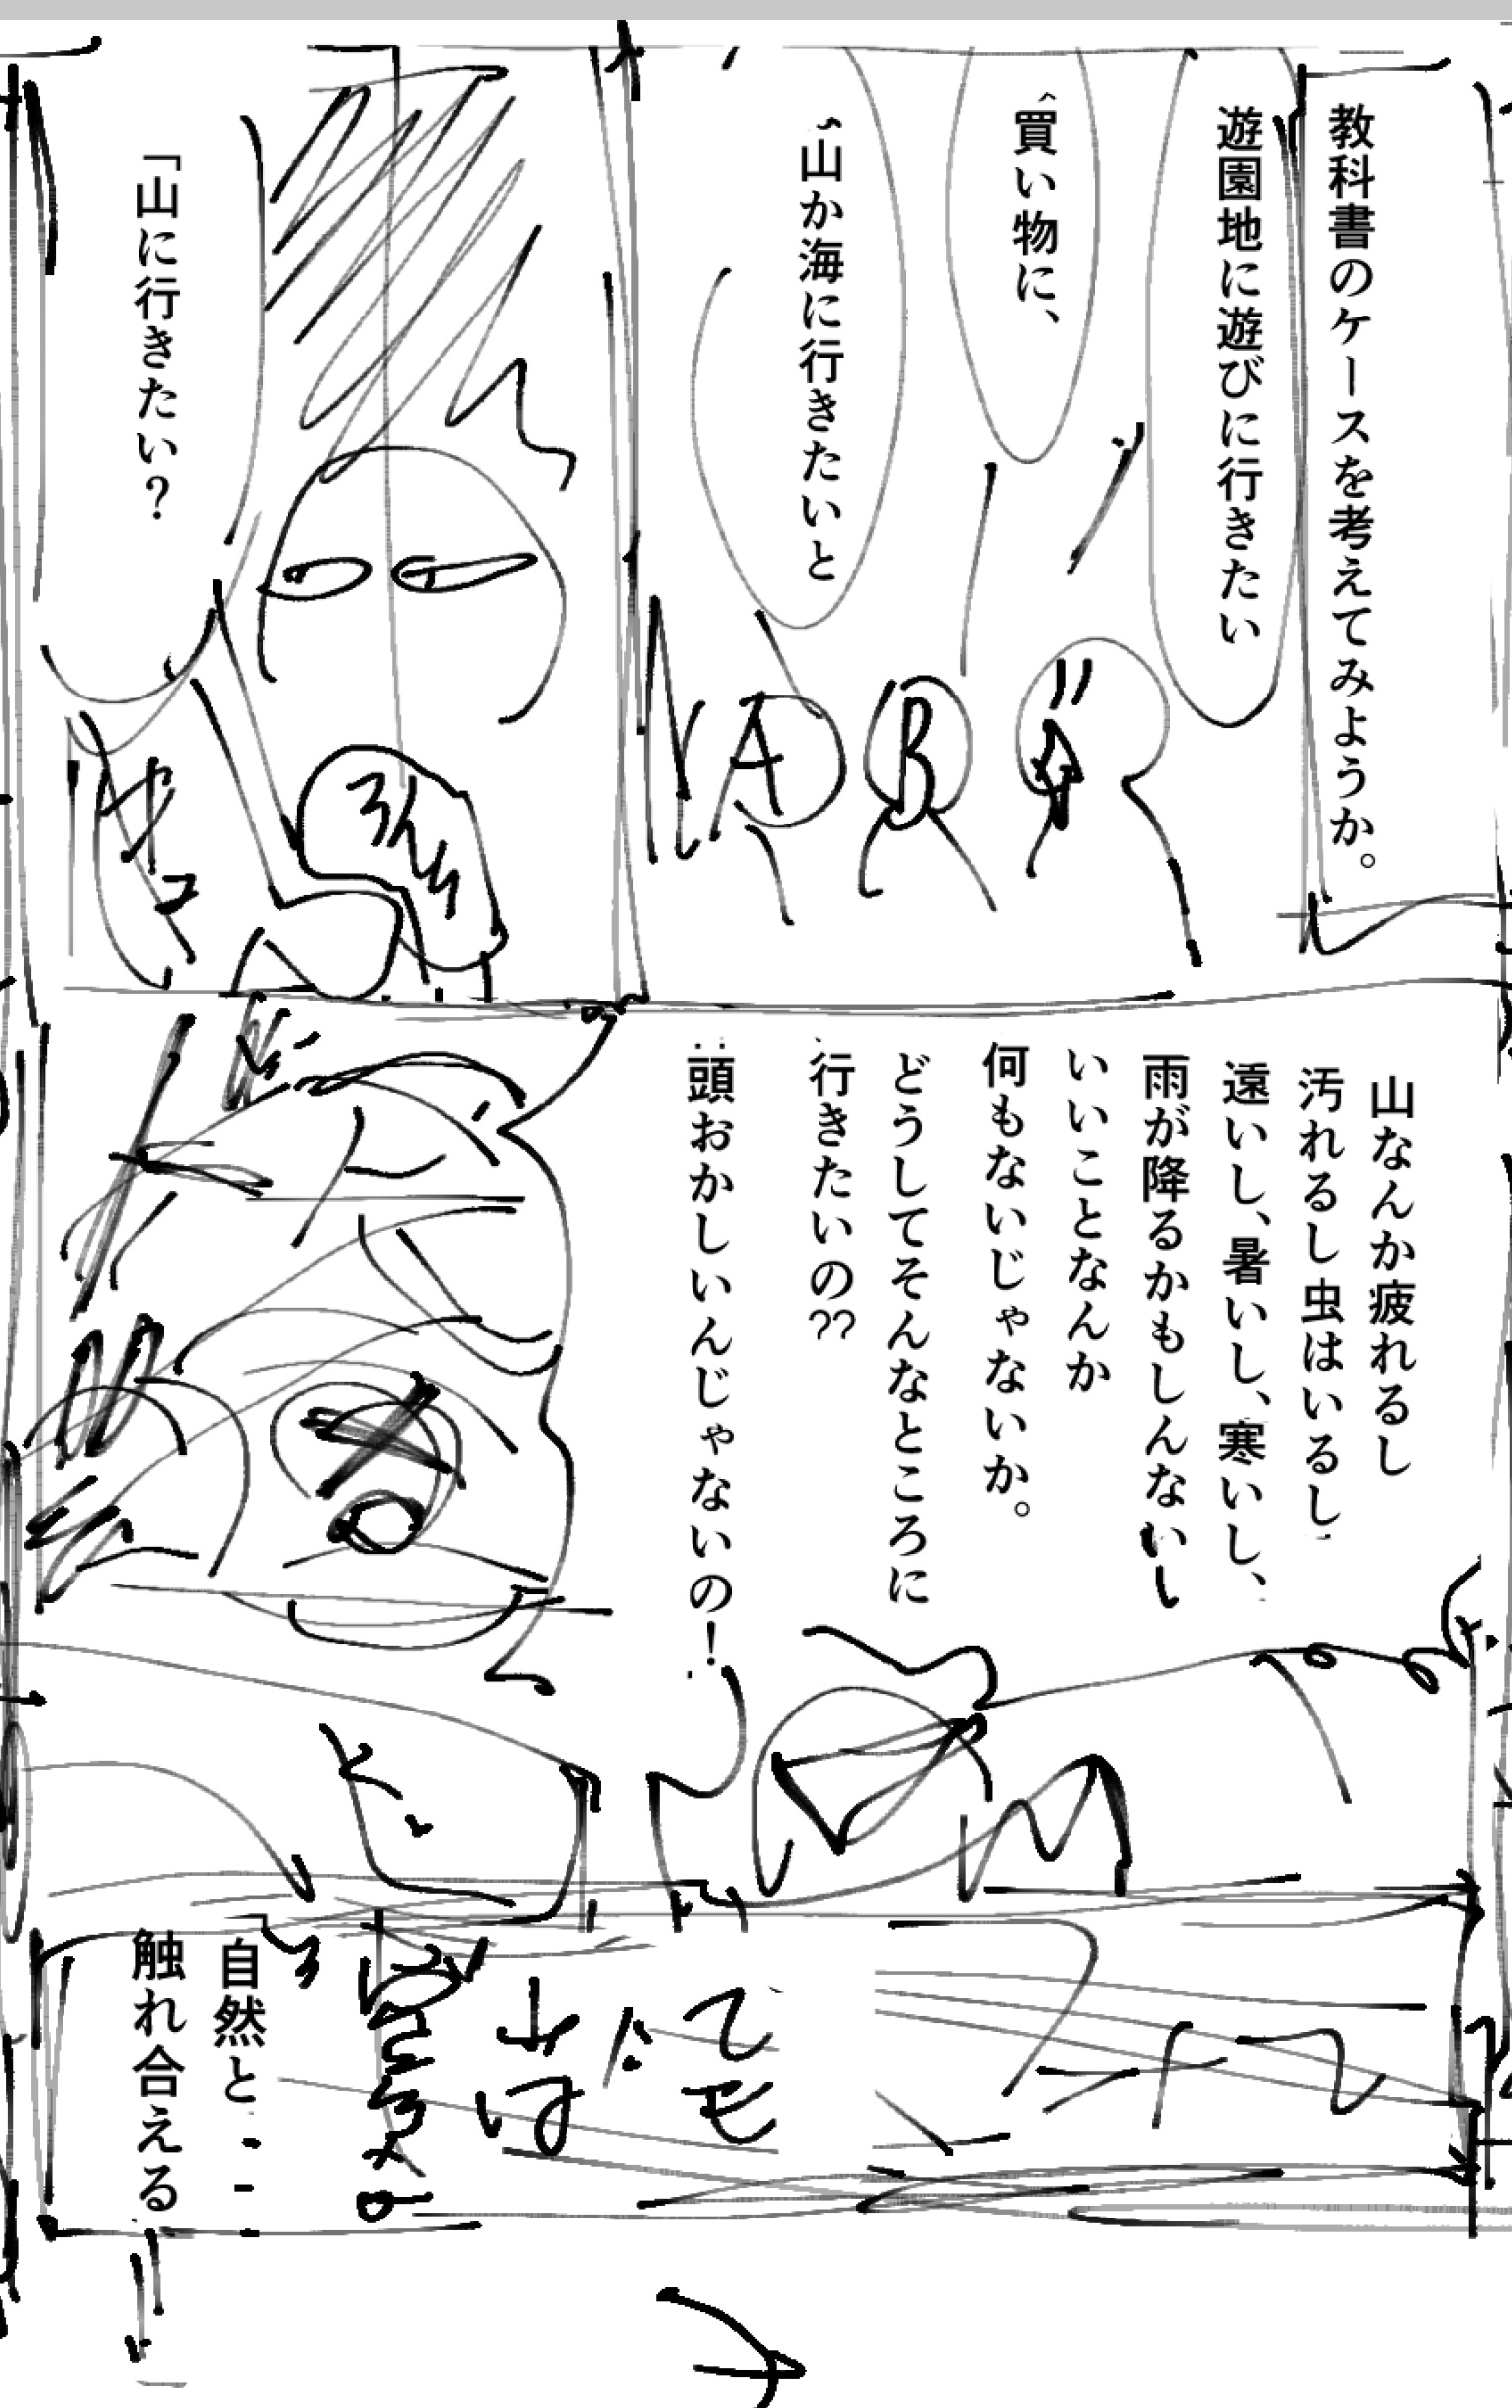 教科書のケースを考えてみようか。
遊園地に遊びに行きたい
買い物に、
山か海に行きたいと
B
A
「山に行きたい？
山なんか疲れるし
汚れるし虫はいるし
遠いし、暑いし、寒いし、
雨が降るかもしんないし
いいことなんか
何もないじゃないか。
どうしてそんなところに
行きたいの??
頭おかしいんじゃないの！
でも
山は
自然と
触れ合える